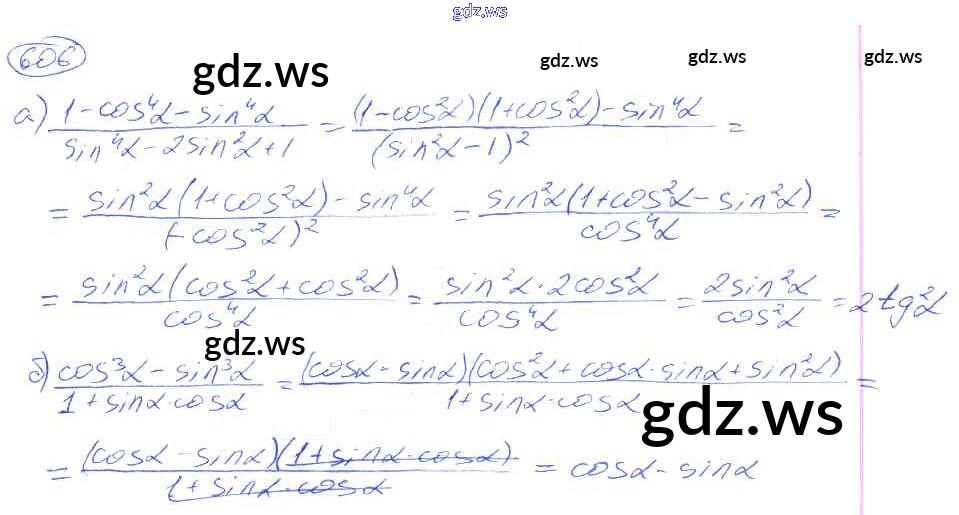 gdz.ws
606
gdz.ws gdz.ws gdz.ws gdz.ws
а) (1-cos⁴α-sin⁴α)/(sin⁴α-2sin²α+1) = ((1-cos²α)(1+cos²α)-sin⁴α)/(sin²α-1)² =
= (sin²α(1+cos²α)-sin⁴α)/(-cos²α)² = (sin²α(1+cos²α-sin²α))/(cos⁴α) =
= (sin²α(cos²α+cos²α))/(cos⁴α) = (sin²α·2cos²α)/(cos⁴α) = (2sin²α)/(cos²α) = 2tg²α
gdz.ws
б) (cos³α-sin³α)/(1+sinα·cosα) = ((cosα-sinα)(cos²α+cosα·sinα+sin²α))/(1+sinα·cosα) =
gdz.ws
= ((cosα-sinα)(1+sinα·cosα))/(1+sinα·cosα) = cosα-sinα